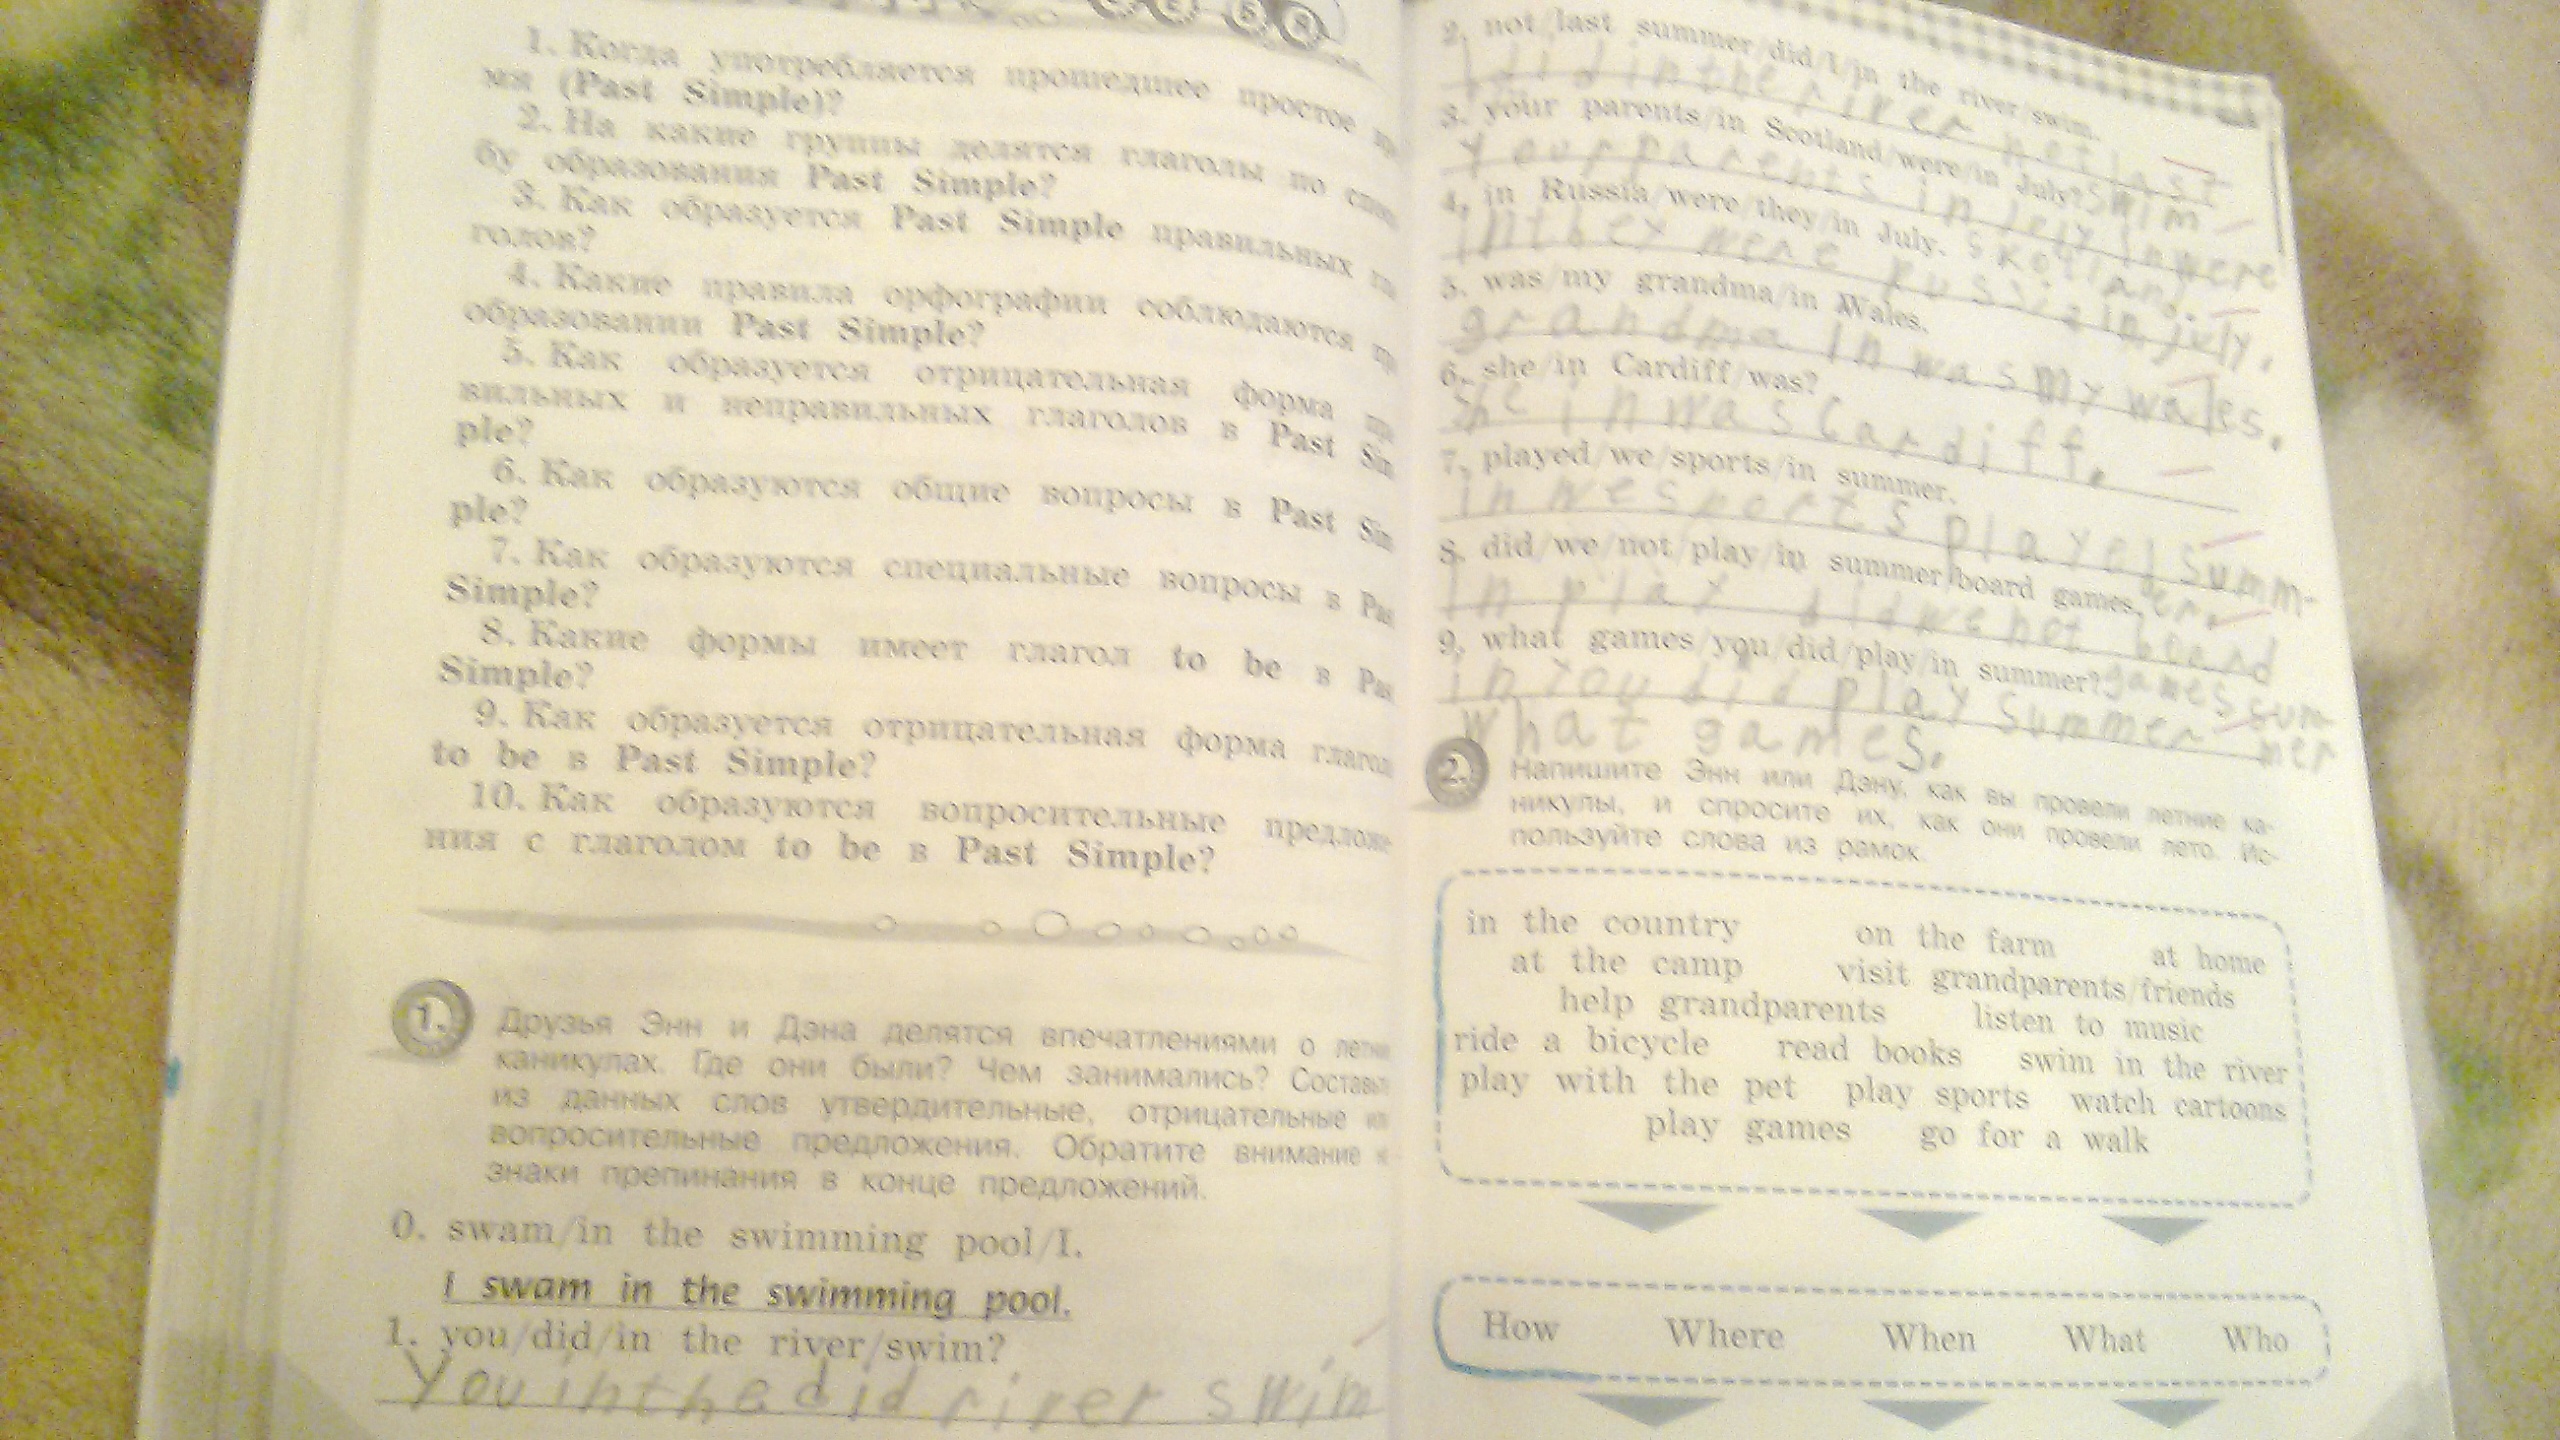 1. Когда употребляется прошедшее простое
мя (Past Simple)?
2. На какие группы делятся глаголы по
бу образования Past Simple?
3. Как образуется Past Simple правильных
голов?
4. Какие правила орфографии соблюдаются
образовании Past Simple?
5. Как образуется отрицательная форма
вильных и неправильных глаголов в Past Sim
ple?
6. Как образуются общие вопросы в Past Sim
ple?
7. Как образуются специальные вопросы в Pas
Simple?
8. Какие формы имеет глагол to be в Pas
Simple?
9. Как образуется отрицательная форма глагол
to be в Past Simple?
10. Как образуются вопросительные предложе
ния с глаголом to be в Past Simple?
1. Друзья Энн и Дэна делятся впечатлениями о летн
каникулах. Где они были? Чем занимались? Составь
из данных слов утвердительные, отрицательные
вопросительные предложения. Обратите внимание
знаки препинания в конце предложений.
0. swam/in the swimming pool/I.
I swam in the swimming pool.
1. you/did/in the river/swim?
You in the did river swim
2. not/last summer/did/I/in the river/swim.
I did in the river not last
swim
3. your parents/in Scotland/were/in July?
your parents in in were
4. in Russia/were/they/in July.
in they were russia in july.
5. was/my grandma/in Wales.
grandma in was my wales.
6. she/in Cardiff/was?
She in was Cardiff.
7. played/we/sports/in summer.
in we sports played summ-
er.
8. did/we/not/play/in summer/board games.
in play did we not board
games sum
mer
9. what games/you/did/play/in summer?
in you did play summer
what games.
2. Напишите Энн или Дэну, как вы провели летние ка-
никулы, и спросите их, как они провели лето. Ис-
пользуйте слова из рамок.
in the country on the farm at home
at the camp visit grandparents/friends
help grandparents listen to music
ride a bicycle read books swim in the river
play with the pet play sports watch cartoons
play games go for a walk
How Where When What Who